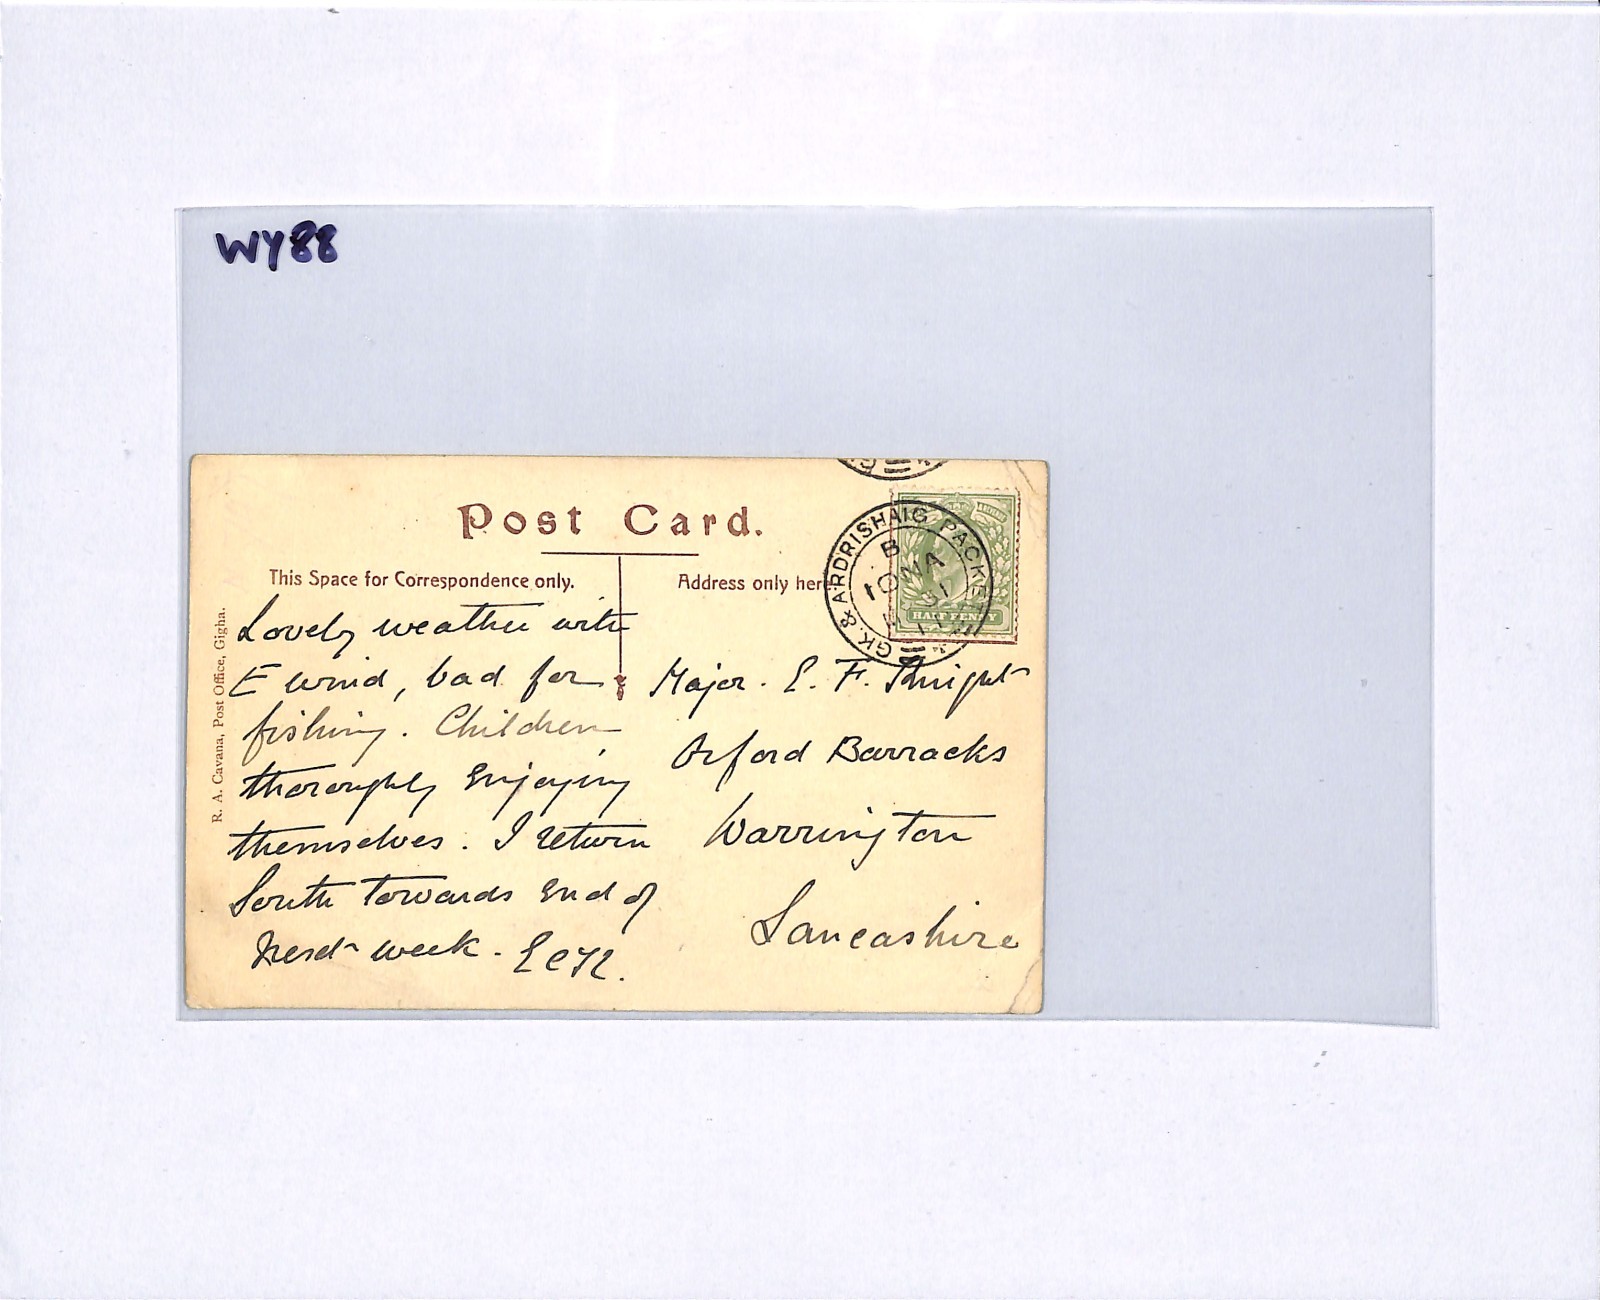 WY88
Post Card.
This Space for Correspondence only.
Address only here
GK. & ARDRISHAIG PACKET
B
10 MA
31
HALF PENNY
R. A. Cavana, Post Office, Gigha.
Lovely weather with
E wind, bad for
fishing. Children
thoroughly enjoying
themselves. I return
South towards end of
next week.
Major. E. F. Knight
Orford Barracks
Warrington
Lancashire